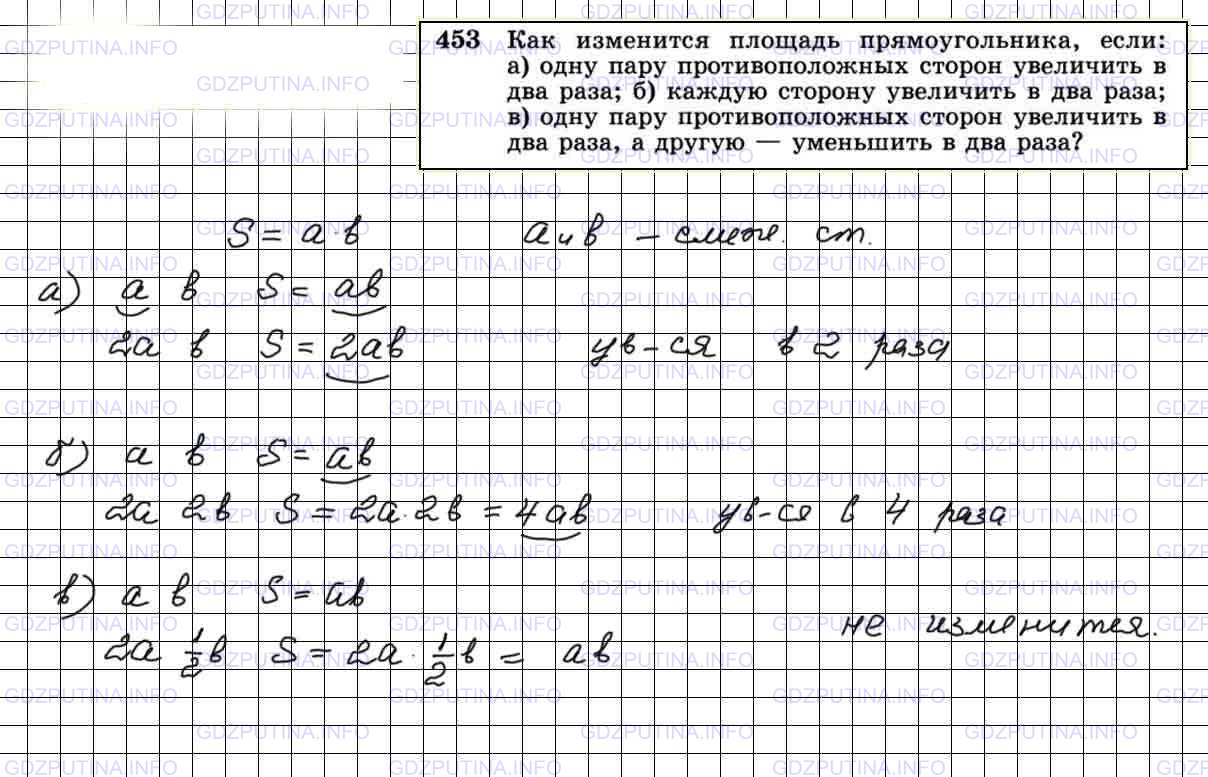 453 Как изменится площадь прямоугольника, если:
а) одну пару противоположных сторон увеличить в
два раза; б) каждую сторону увеличить в два раза;
в) одну пару противоположных сторон увеличить в
два раза, а другую — уменьшить в два раза?
S = a·b a и b – смеж. ст.
а) a b S = ab
2a b S = 2ab ув-ся в 2 раза
б) a b S = ab
2a 2b S = 2a·2b = 4ab ув-ся в 4 раза
в) a b S = ab
не изменится.
2a 1/2b S = 2a·1/2b = ab
GDZPUTINA.INFO